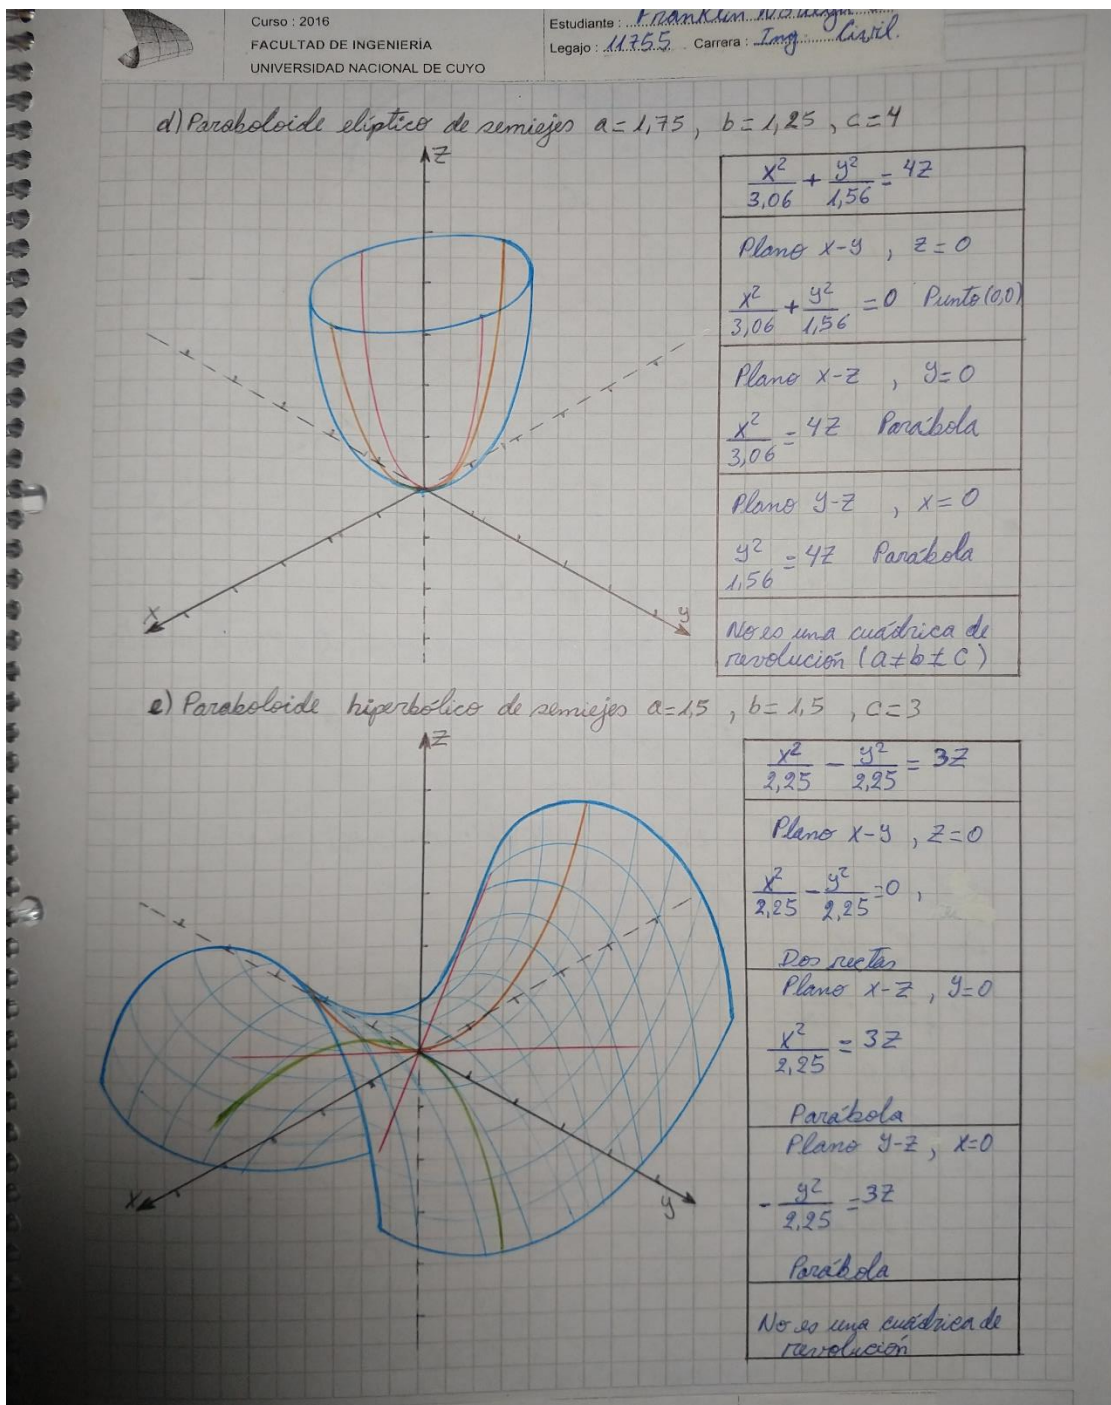 Curso : 2016
FACULTAD DE INGENIERÍA
UNIVERSIDAD NACIONAL DE CUYO
Estudiante : Franklin
Legajo : 11755 Carrera : Ing. Civil.
d) Paraboloide elíptico de semiejes a=1,75, b=1,25, c=4
z
x
y
x²/3,06 + y²/1,56 = 4z
Plano x-y, z=0
x²/3,06 + y²/1,56 = 0 Punto (0,0)
Plano x-z, y=0
x²/3,06 = 4z Parábola
Plano y-z, x=0
y²/1,56 = 4z Parábola
No es una cuádrica de
revolución (a≠b≠c)
e) Paraboloide hiperbólico de semiejes a=1,5, b=1,5, c=3
z
x
y
x²/2,25 - y²/2,25 = 3z
Plano x-y, z=0
x²/2,25 - y²/2,25 = 0,
Dos rectas
Plano x-z, y=0
x²/2,25 = 3z
Parábola
Plano y-z, x=0
- y²/2,25 = 3z
Parábola
No es una cuádrica de
revolución